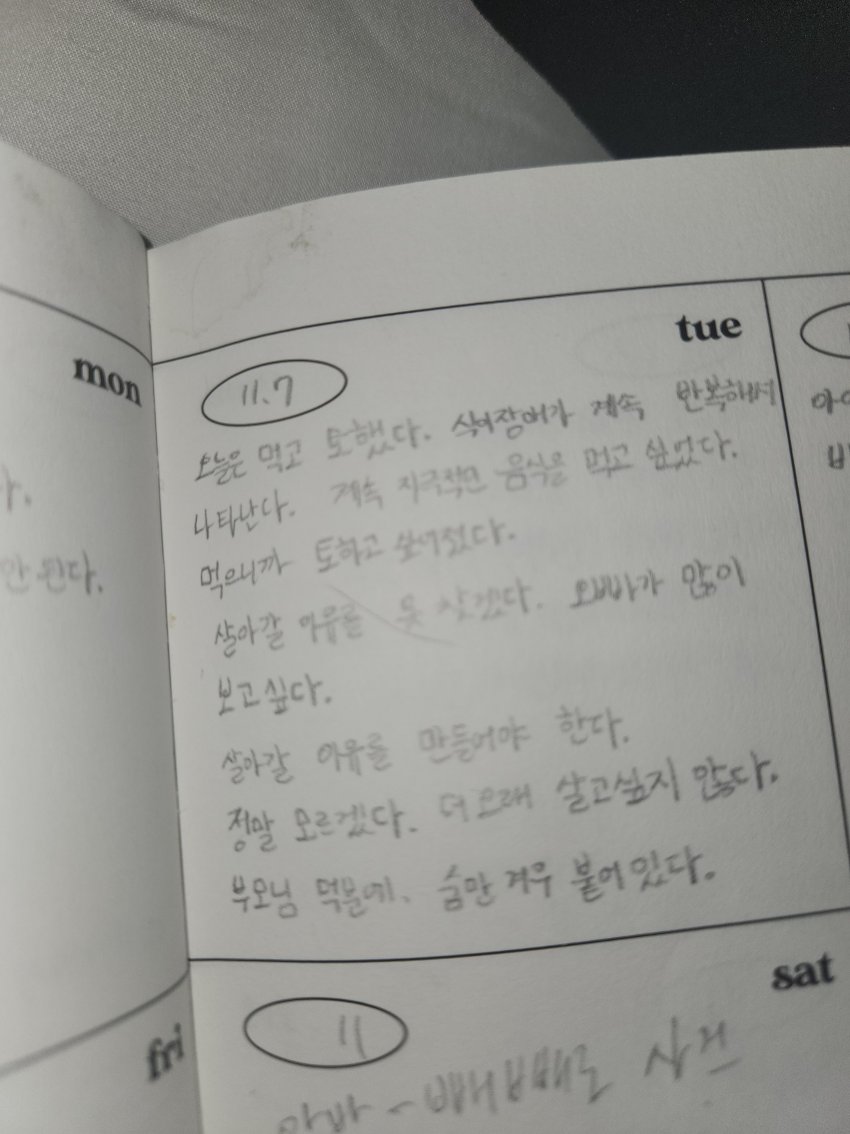 mon
다.
안 된다.
fri
tue
11.7
오늘은 먹고 토했다. 식이장애가 계속 반복해서
나타난다. 계속 자극적인 음식을 먹고 싶었다.
먹으니까 토하고 싶어졌다.
살아갈 이유를 못 찾겠다. 오빠가 많이
보고싶다.
살아갈 이유를 만들어야 한다.
정말 모르겠다. 더 오래 살고싶지 않다.
부모님 덕분에. 숨만 겨우 붙어 있다.
sat
11
아빠 - 빼빼로